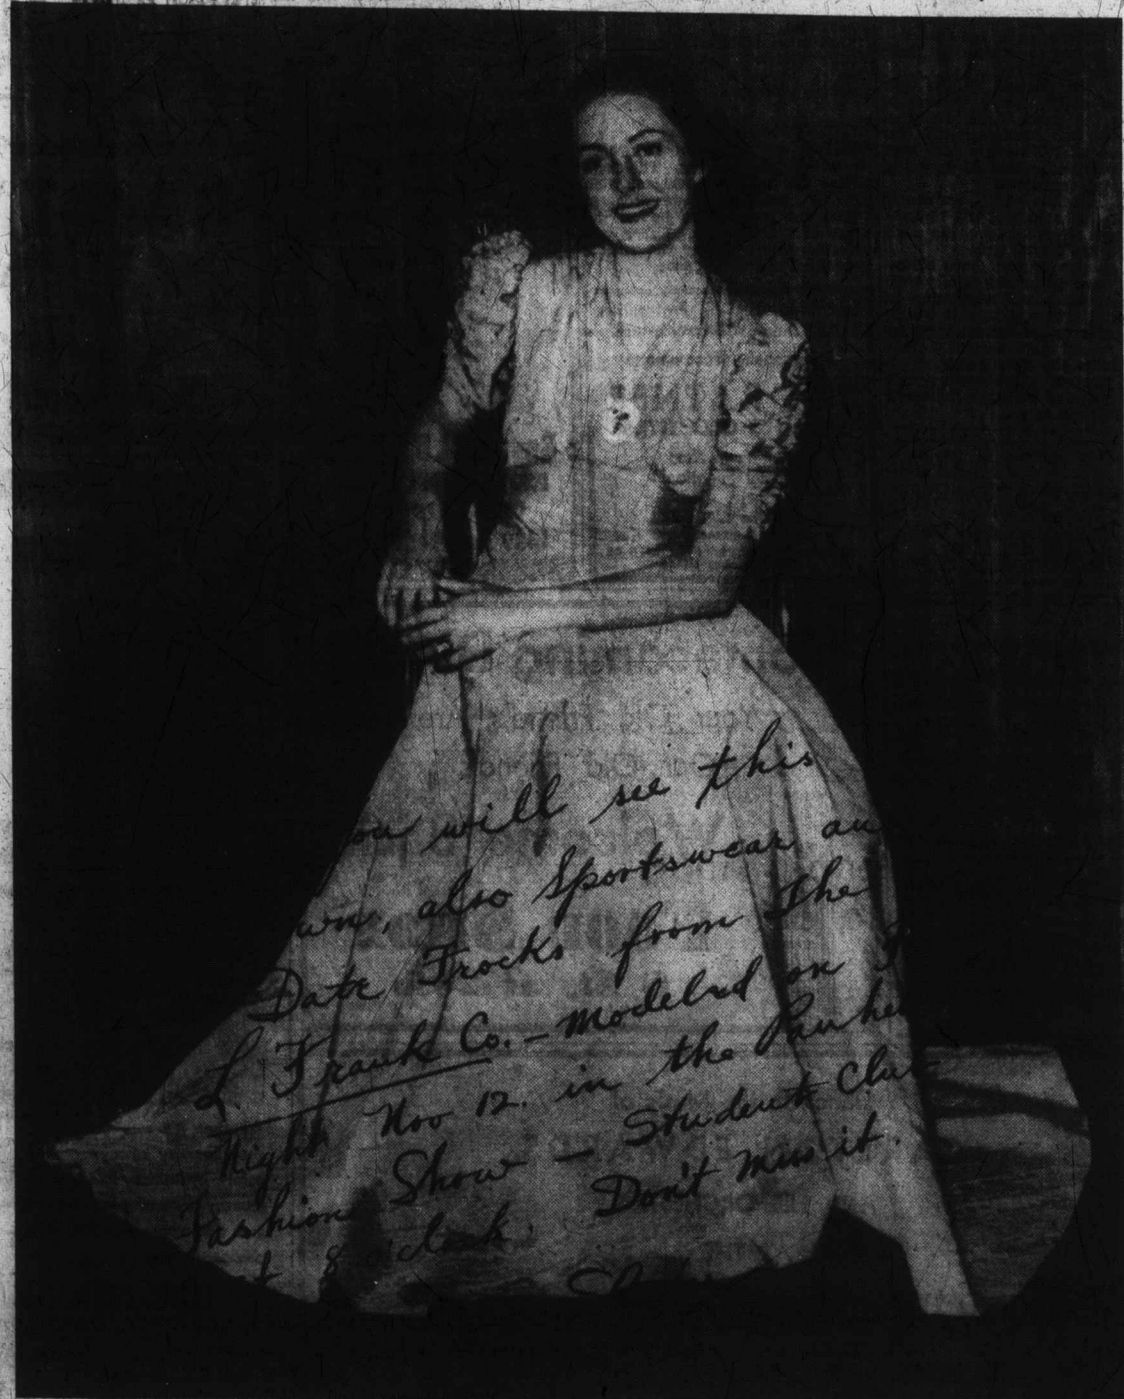 ou will see this
wn, also Sportswear an
Date Frocks from The
L. Frank Co. – modeled on F
Night Nov 12. in the Panhe
Fashion Show – Student Clu
t 8 o'clock. Don't miss it.